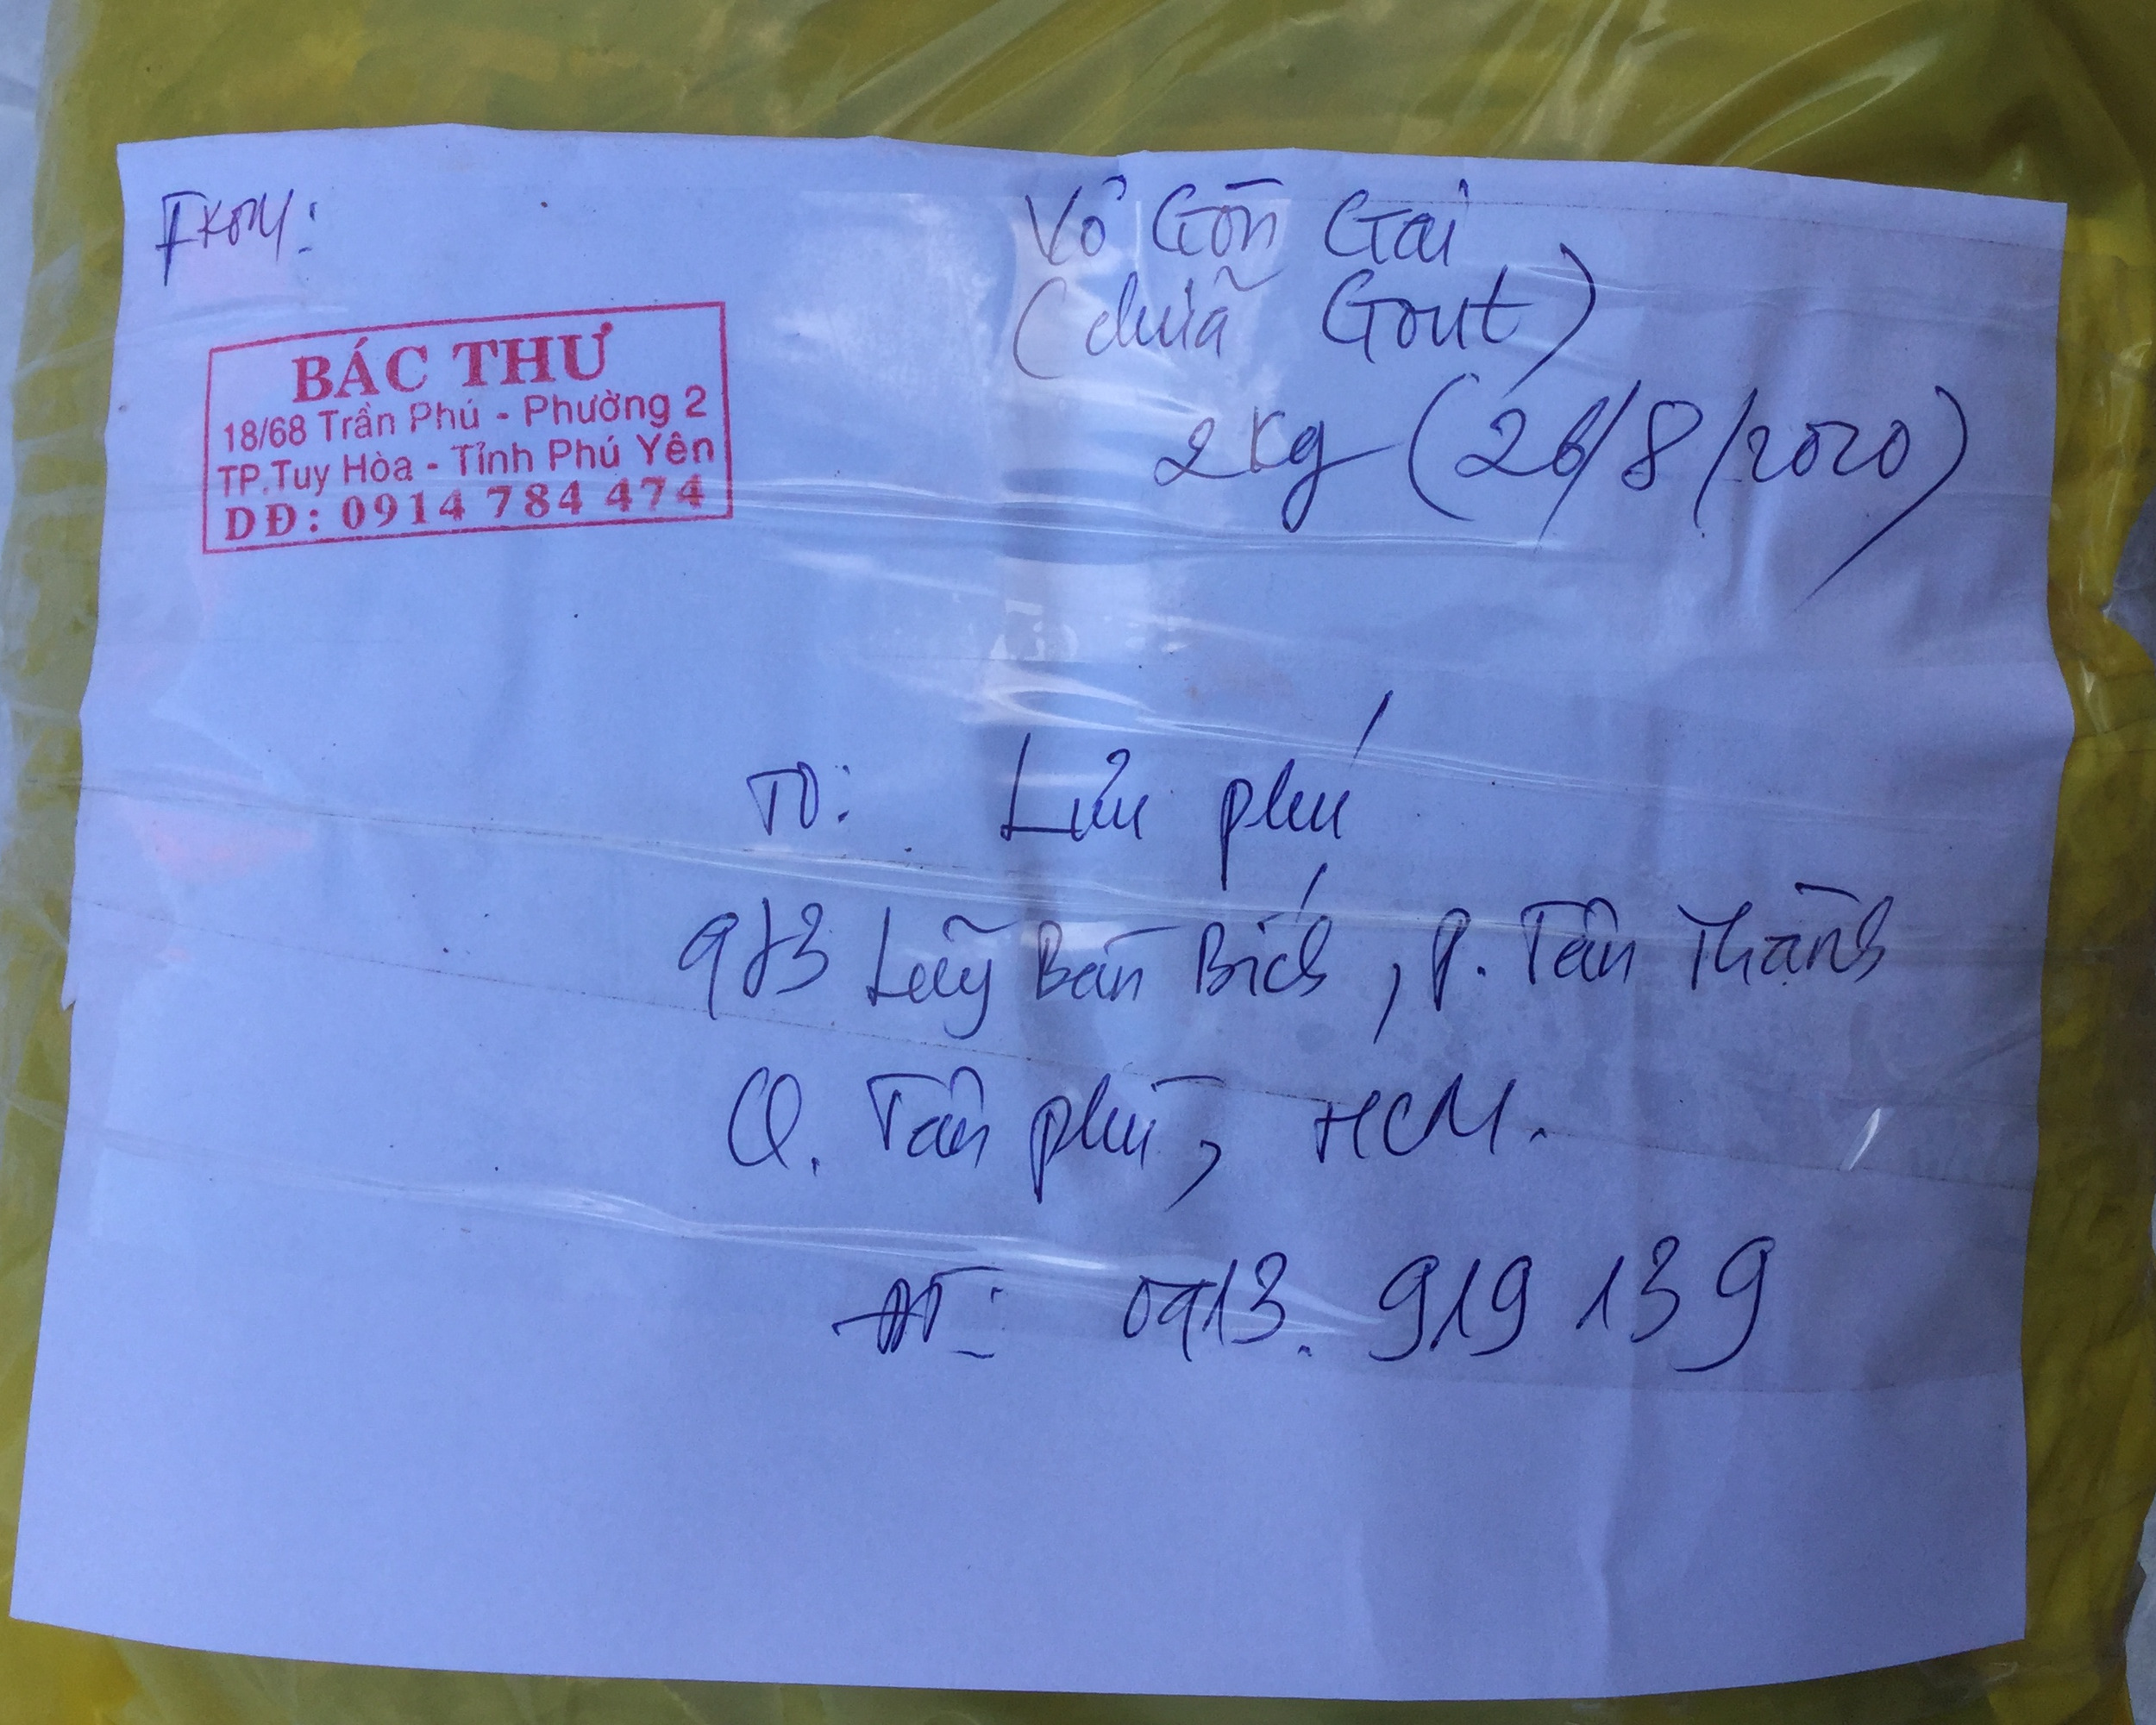 From:
BÁC THƯ
18/68 Trần Phú - Phường 2
TP.Tuy Hòa - Tỉnh Phú Yên
DĐ: 0914 784 474
Vỏ Gòn Gai
(chữa Gout)
2Kg (26/8/2020)
TO: Lưu phú
973 Luỹ Bán Bích, P. Tân Thành
Q. Tân phú, HCM.
ĐT: 0913. 919 139